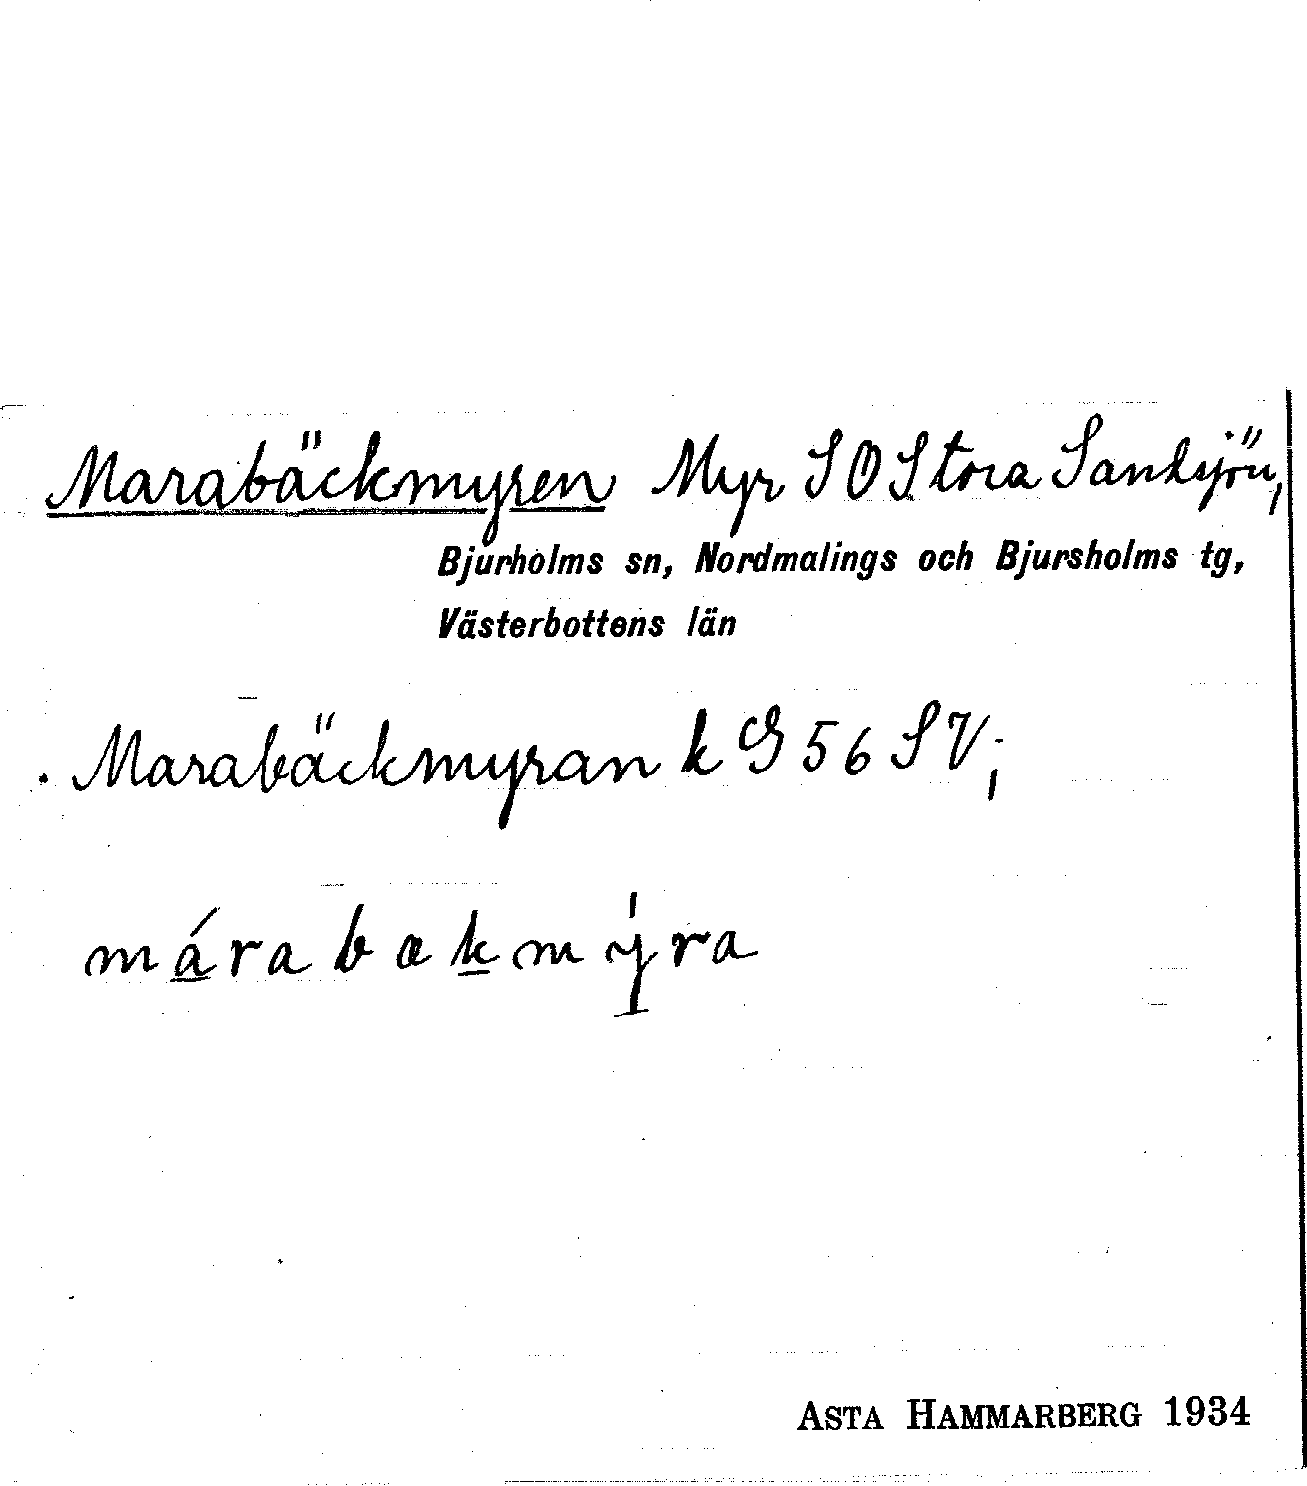 Marabäckmyren Myr SO Stora Sandsjön,
Bjurholms sn, Nordmalings och Bjursholms tg,
Västerbottens län
. Marabäckmyran k G 56 SV;
márabækmýra
ASTA HAMMARBERG 1934